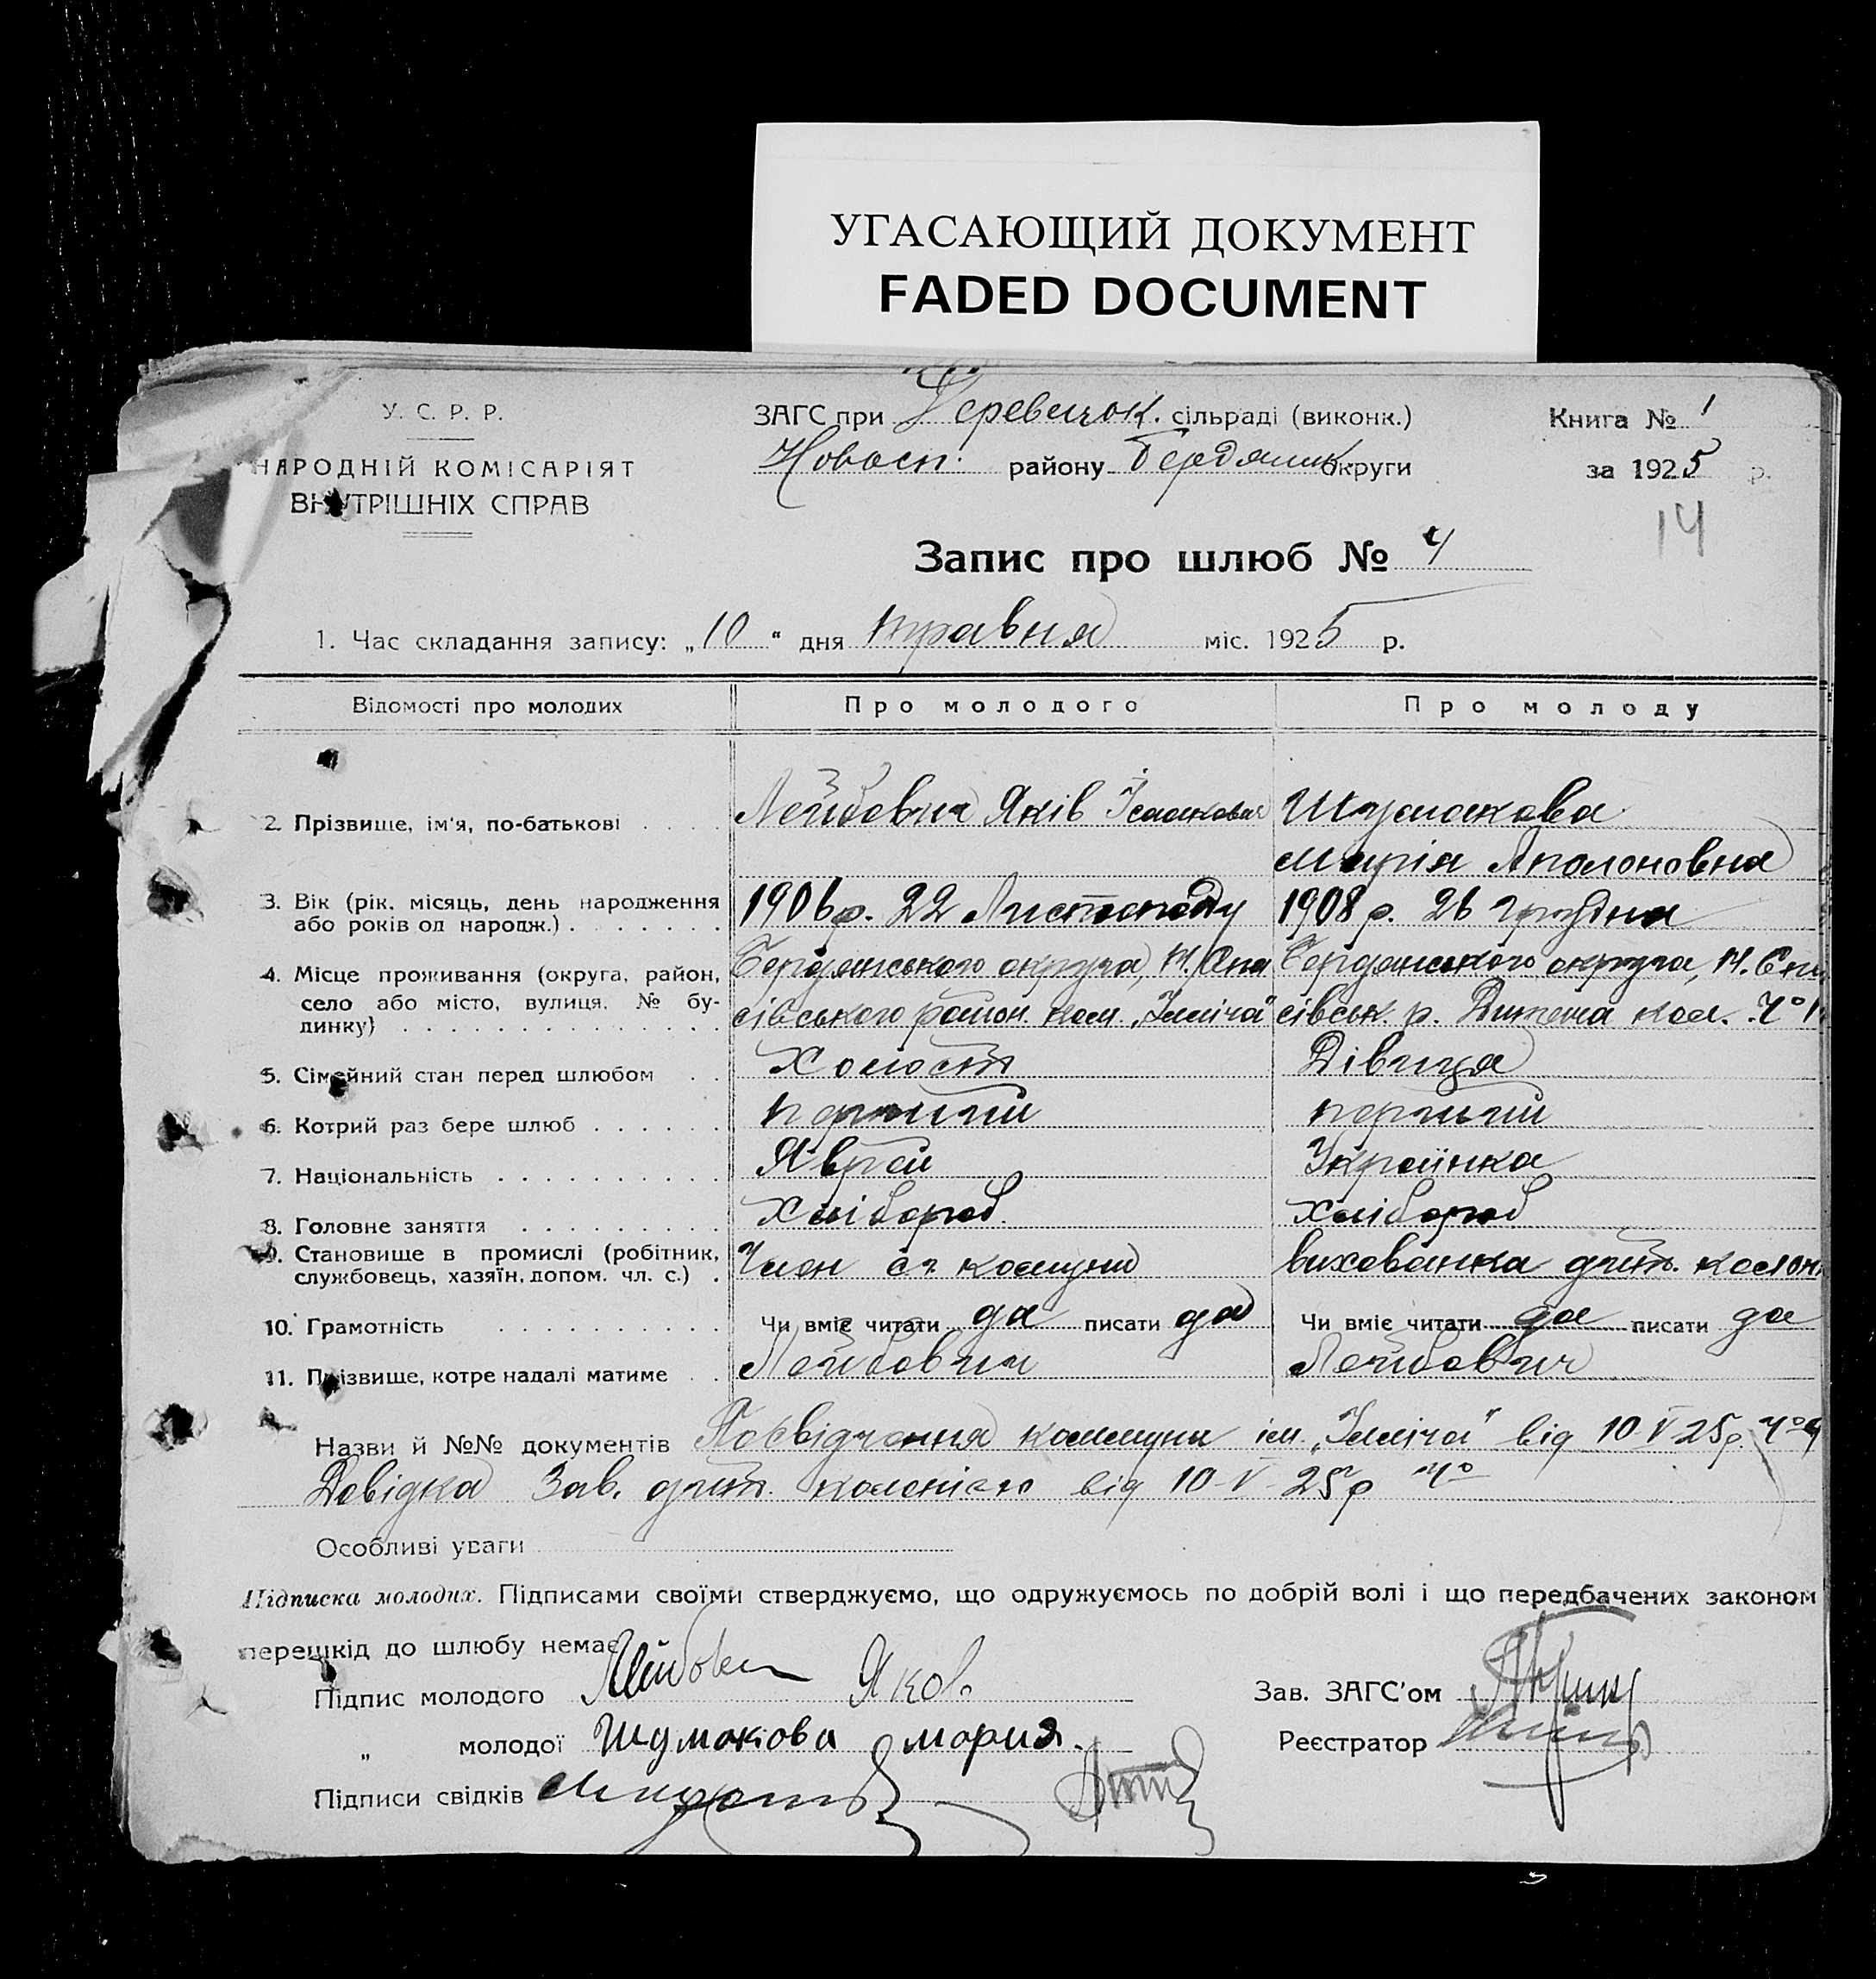 УГАСАЮЩИЙ ДОКУМЕНТ
FADED DOCUMENT
У. С. Р. Р.
НАРОДНІЙ КОМІСАРІЯТ
ВНУТРІШНІХ СПРАВ
ЗАГС при сільраді (виконк.)
Новосп. району Бердянск. округи
Книга № 1
за 1925 р.
14
Запис про шлюб № 4
1. Час складання запису: „10“ дня травня міс. 1925 р.
Відомості про молодих Про молодого Про молоду
2. Прізвище, ім'я, по-батькові . . . . Лейбович Яків Ісаакович Шумакова
Марія Аполоновна
3. Вік (рік, місяць, день народження 1906 р. 22 Листопаду 1908 р. 26 грудня
або років од народж.) . . . . . . .
4. Місце проживання (округа, район, Бердянського округа, Н. Спа Бердянського округа, Н. Спа
село або місто, вулиця, № бу- сівського район. ком. „Ілліча" сівськ. р. Дитяча кол. №1
динку) . . . . . . . . . . . . . .
5. Сімейний стан перед шлюбом . . Холост Дівиця
6. Котрий раз бере шлюб . . . . . . перший перший
7. Національність . . . . . . . . . . Яврей Українка
8. Головне заняття . . . . . . . . . Хлібороб. хлібороб
9. Становище в промислі (робітник, Член с.г. комуни вихованка дит. колон
службовець, хазяїн, допом. чл. с.) .
10. Грамотність . . . . . . . . . . Чи вміє читати да писати да Чи вміє читати да писати да
11. Прізвище, котре надалі матиме . . Лейбович Лейбович
Назви й №№ документів Посвідчення коммуни ім. „Ілліча" від 10 V 25р. №
Довідка Зав. дит. колонією від 10-V-25р №
Особливі уваги
Підписка молодих. Підписами своїми стверджуємо, що одружуємось по добрій волі і що передбачених законом
перешкід до шлюбу немає
Підпис молодого Лейбович Яков.
Зав. ЗАГС'ом
„ молодої Шумакова мария.
Реєстратор
Підписи свідків